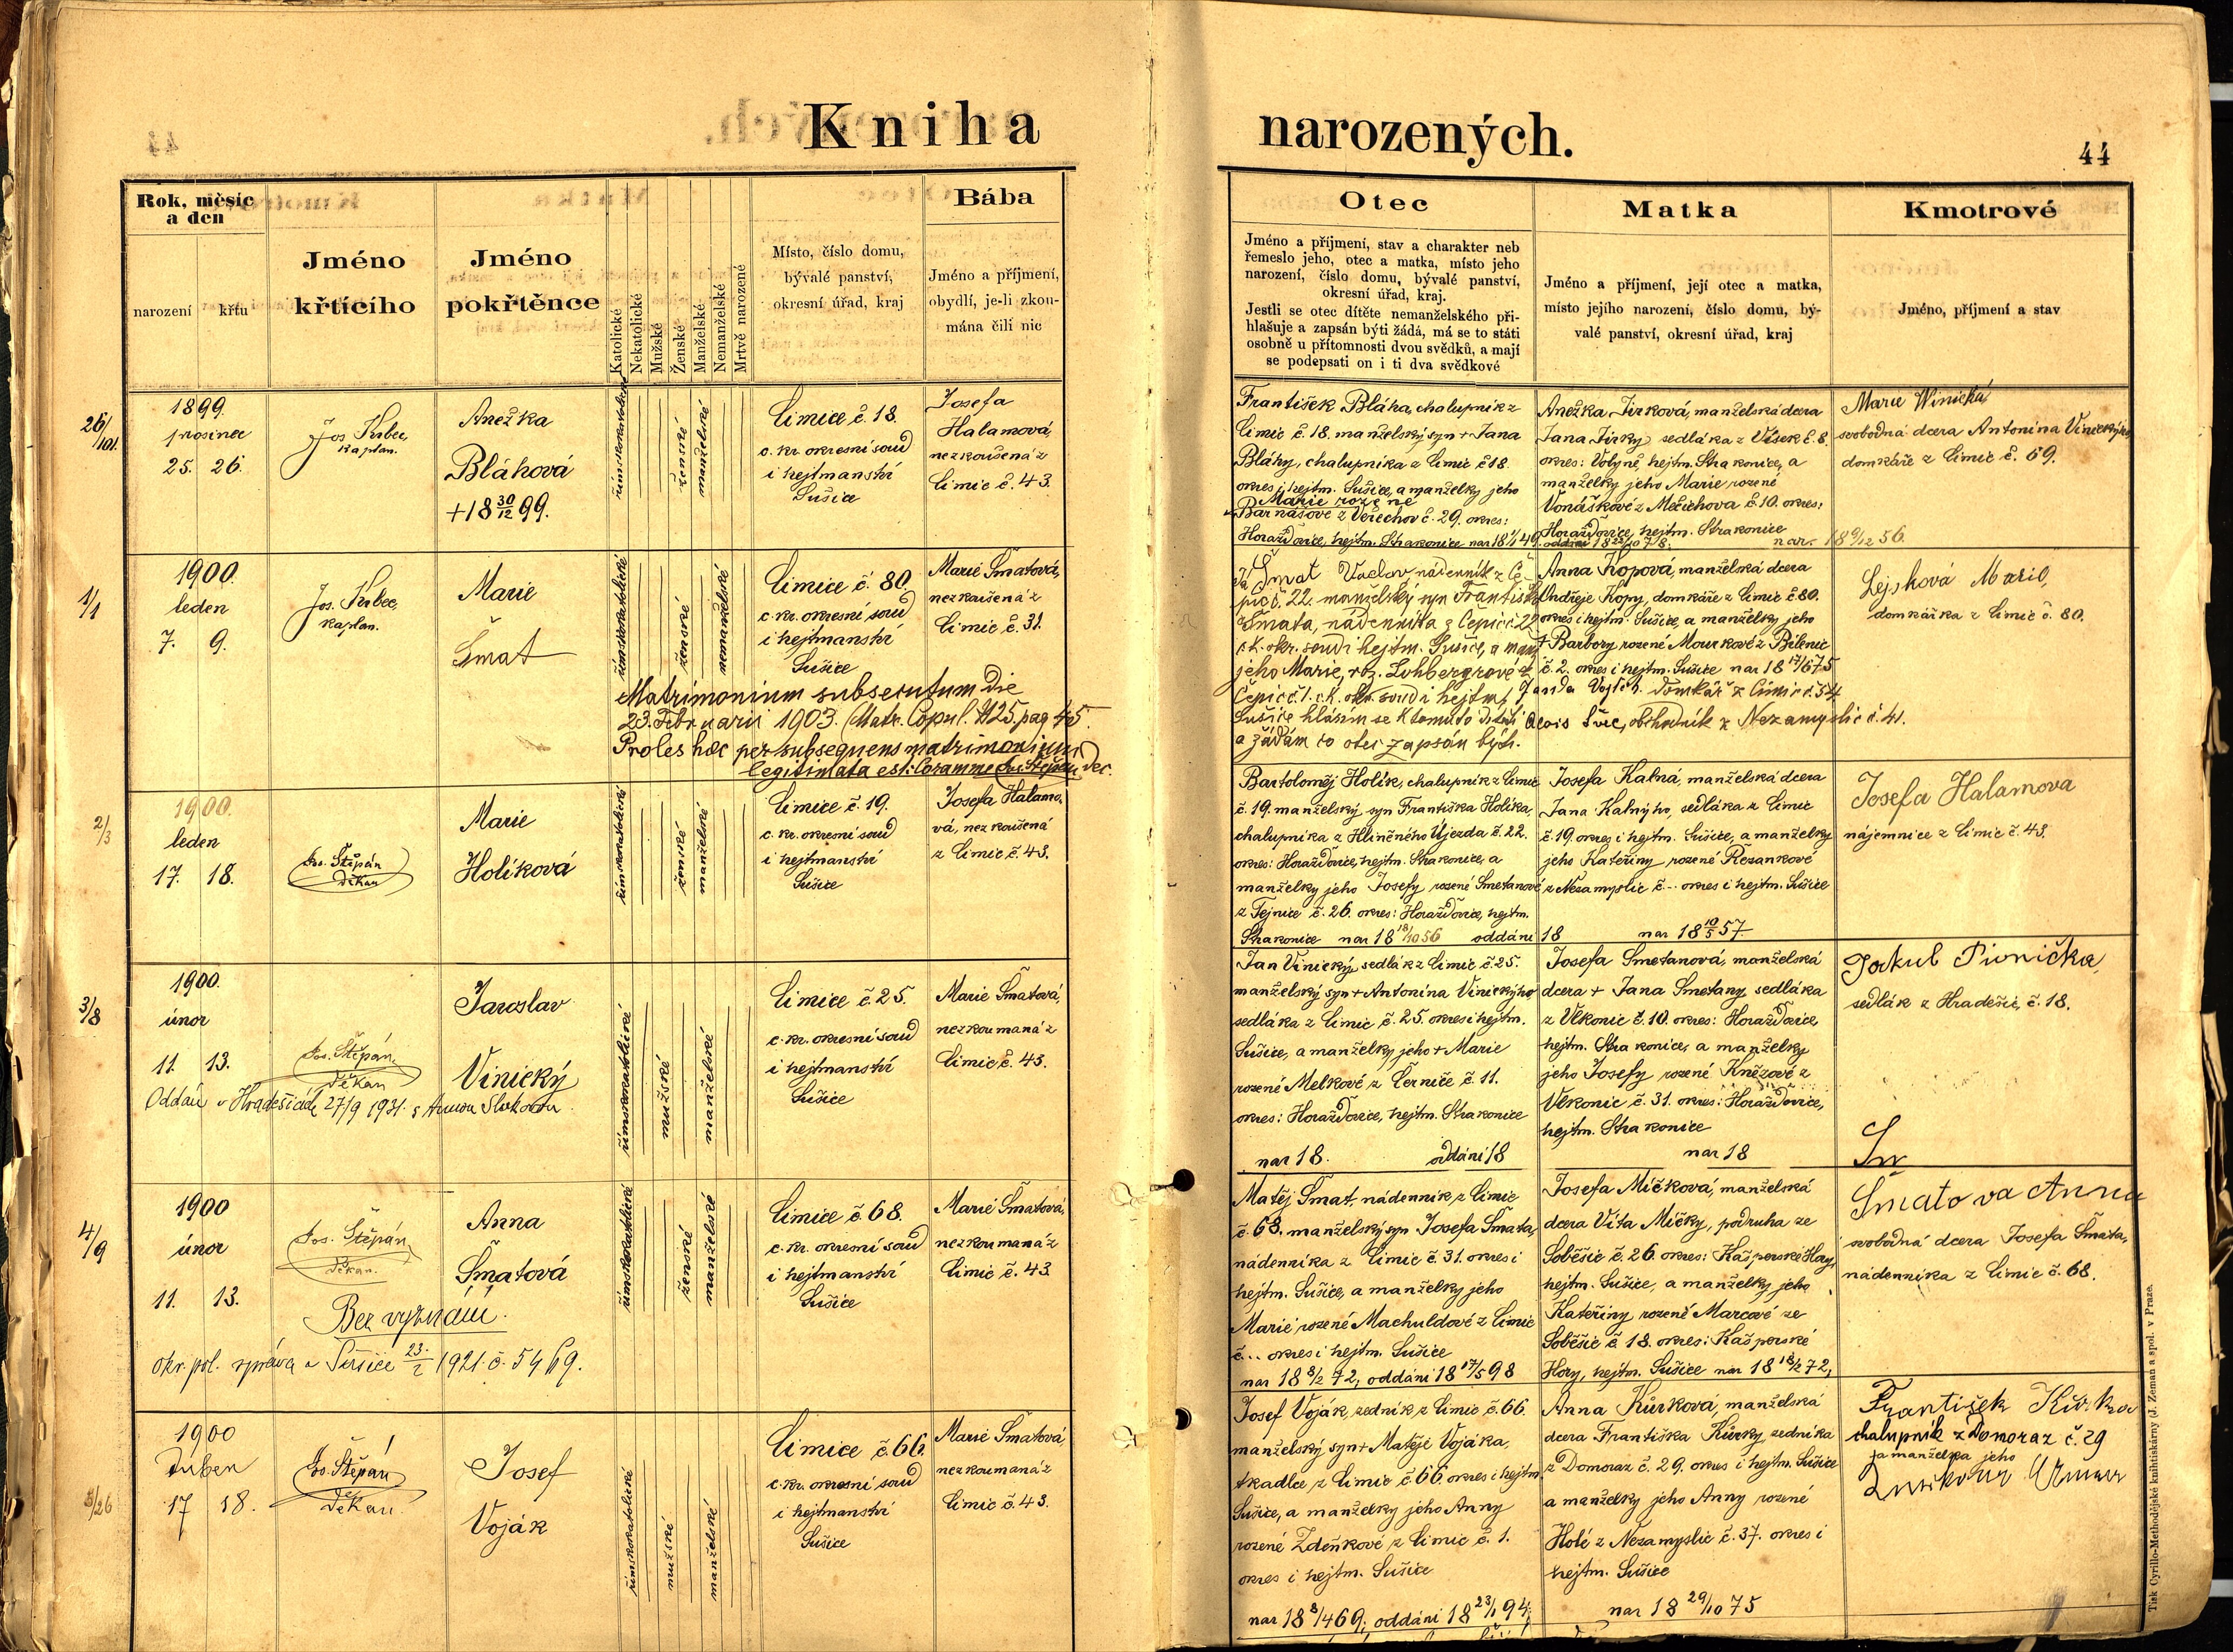 Kniha
narozených.
44
Rok, měsíc
a den
narození
křtu
Jméno
křtícího
Jméno
pokřtěnce
Katolické
Nekatolické
Mužské
Ženské
Manželské
Nemanželské
Mrtvě narozené
Místo, číslo domu,
bývalé panství,
okresní úřad, kraj
Bába
Jméno a příjmení,
obydlí, je-li zkou-
mána čili nic
Otec
Jméno a příjmení, stav a charakter neb
řemeslo jeho, otec a matka, místo jeho
narození, číslo domu, bývalé panství,
okresní úřad, kraj.
Jestli se otec dítěte nemanželského při-
hlašuje a zapsán býti žádá, má se to státi
osobně u přítomnosti dvou svědků, a mají
se podepsati on i ti dva svědkové
Matka
Jméno a příjmení, její otec a matka,
místo jejího narození, číslo domu, bý-
valé panství, okresní úřad, kraj
Kmotrové
Jméno, příjmení a stav
1899.
prosinec
25. 26.
kaplan.
Anežka
Bláhová
+18 30/12 99.
římskokatolické
ženské
manželské
Čimice č. 18.
c. kr. okresní soud
i hejtmanství
Sušice
Josefa
Halamová,
nezkoušená z
Čimic č. 43.
František Bláha, chalupník z
Čimic č. 18. manželský syn + Jana
Bláhy, chalupníka z Čimic č 18.
okres i hejtm. Sušice, a manželky jeho
Marie rozené
Barnášové z Veřechov č. 29. okres:
Horažďovice, hejtm. Strakonice
Anežka Jirková, manželská dcera
Jana Jirky sedláka z Vísek č. 8.
okres: Volyně, hejtm. Strakonice, a
manželky jeho Marie rozené
Vonáškové z Mečichova č. 10. okres:
Horažďovice, hejtm. Strakonice
nar. 18 9/12 56.
Marie Winická
svobodná dcera Antonína Vinického
domkáře z Čimic č. 69.
1/1
1900.
leden
7. 9.
kaplan.
Marie
Šmat
římskokatolické
ženské
nemanželské
Čimice č. 80.
c. kr. okresní soud
i hejtmanství
Sušice
Marie Šmatová,
nezkoušená z
Čimic č. 31.
Matrimonium subsecutum die
23. Februarii 1903. (Matr. Copul. pag 45.
Proles haec per subsequens matrimonium
legitimata est: Coram me Jos. Štěpán, dec.
Já Šmat Václav, nádenník z Če-
pic č. 22. manželský syn Františka
Šmata, nádenníka z Čepic č. 22
c.k. okr. soud i hejtm. Sušice, a manž.
jeho Marie, roz. Lohbergrové z
Čepic č. 1. c.k. okr. soud i hejtm.
Sušice hlásím se k tomuto dítěti
a žádám co otec zapsán býti.
Anna Kopová, manželská dcera
Ondřeje Kopy, domkáře z Čimic č 80.
okres i hejtm. Sušice, a manželky jeho
+ Barbory rozené Mourkové z Bílenic
č. 2. okres i hejtm. Sušice nar 18 17/6 75
Janda Vojtěch domkář z Čimic č. 54
Alois Švec, obchodník z Nezamyslic č. 41.
Lejsková Marie,
domkářka z Čimic č. 80.
2/3
1900.
leden
17. 18.
Jos. Štěpán
děkan
Marie
Holíková
římskokatolické
ženské
manželské
Čimice č. 19.
c. kr. okresní soud
i hejtmanství
Sušice
Josefa Halamo-
vá, nezkoušená
z Čimic č. 43.
Bartoloměj Holík, chalupník z Čimic
č. 19. manželský syn Františka Holíka,
chalupníka z Hliněného Újezda č. 22.
okres: Horažďovice, hejtm. Strakonice, a
manželky jeho Josefy rozené Smetanové
z Tejnice č. 26. okres: Horažďovice, hejtm.
Strakonice nar 18 18/10 56 oddáni 18
Josefa Kalná, manželská dcera
Jana Kalnýho, sedláka z Čimic
č. 19. okres i hejtm. Sušice, a manželky
jeho Kateřiny rozené Řezankové
z Nezamyslic č -- okres i hejtm. Sušice
nar 18 10/5 57.
Josefa Halamova
nájemnice z Čimic č. 43.
3/8
1900.
únor
11. 13.
Jos. Štěpán,
děkan
Jaroslav
Vinický
římskokatolické
mužské
manželské
Čimice č. 25.
c. kr. okresní soud
i hejtmanství
Sušice
Marie Šmatová,
nezkoumaná z
Čimic č. 43.
Jan Vinický, sedlák z Čimic č. 25.
manželský syn + Antonína Vinickýho
sedláka z Čimic č. 25. okres i hejtm.
Sušice, a manželky jeho + Marie
rozené Melkové z Černíče č. 11.
okres: Horažďovice, hejtm. Strakonice
nar 18. oddáni 18
Josefa Smetanová, manželská
dcera + Jana Smetany, sedláka
z Vlkonic č. 10. okres: Horažďovice,
hejtm. Strakonice, a manželky
jeho Josefy rozené Knězové z
Vlkonic č. 31. okres: Horažďovice,
hejtm. Strakonice
nar 18
Jakub Pivnička,
sedlák z Hradešic, č. 18.
Oddán v Hradešicích 27/9 1931. s Annou
4/9
1900
únor
11. 13.
Jos. Štěpán,
děkan.
Anna
Šmatová
římskokatolické
ženské
manželské
Čimice č. 68.
c. kr. okresní soud
i hejtmanství
Sušice
Marie Šmatová,
nezkoumaná z
Čimic č. 43.
Bez vyznání.
okr. pol. správa v Sušici 23./2 1921. č. 5469.
Matěj Šmat, nádenník z Čimic
č. 68. manželský syn Josefa Šmata,
nádenníka z Čimic č. 31. okres i
hejtm. Sušice, a manželky jeho
Marie rozené Machuldové z Čimic
č... okres i hejtm. Sušice
nar 18 8/2 72, oddáni 18 17/5 98
Josefa Mičková, manželská
dcera Víta Mičky, podruha ze
Soběšic č. 26. okres: Kašperské Hory,
hejtm. Sušice, a manželky jeho
Kateřiny rozené Marcové ze
Soběšic č. 18. okres: Kašperské
Hory, hejtm. Sušice nar 18 18/2 72,
Šmatova Anna
svobodná dcera Josefa Šmata,
nádenníka z Čimic č. 68.
5/26
1900
Duben
17 18.
Jos. Štěpán
děkan
Josef
Voják
římskokatolické
mužské
manželské
Čimice č 66.
c. kr. okresní soud
i hejtmanství
Sušice
Marie Šmatová
nezkoumaná z
Čimic č. 43.
Josef Voják, zedník z Čimic č. 66.
manželský syn + Matěje Vojáka,
tkadlce z Čimic č. 66 okres i hejtm.
Sušice, a manželky jeho Anny
rozené Zdeňkové z Čimic č. 1.
okres i hejtm. Sušice
nar 18 8/4 69; oddáni 18 23/1 94;
Anna Kůrková, manželská
dcera Františka Kůrky, zedníka
z Domoraz č. 29. okres i hejtm. Sušice
a manželky jeho Anny rozené
Holé z Nezamyslic č. 37. okres i
hejtm. Sušice
nar 18 29/10 75
František Kůrka
chalupník z Domoraz č. 29
a manželka jeho
Tisk Cyrillo-Methodějské knihtiskárny (J. Zeman a spol. v Praze.